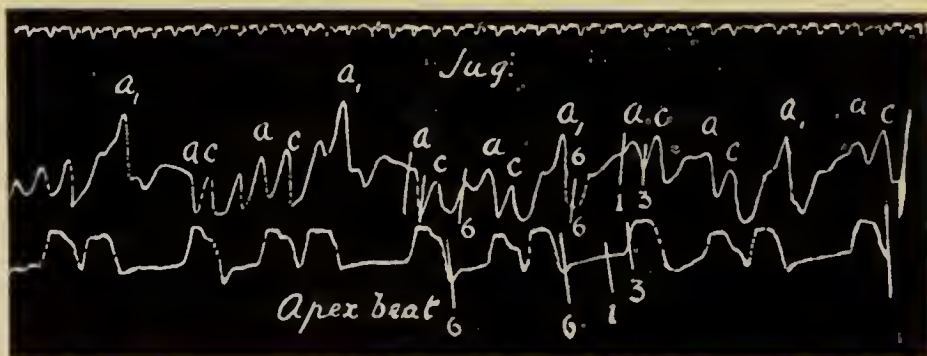 Jug:
a, a c a c a, a c a c a, 6 a c a c a, a c
6 6 1 3
Apex beat 6 6 1 3